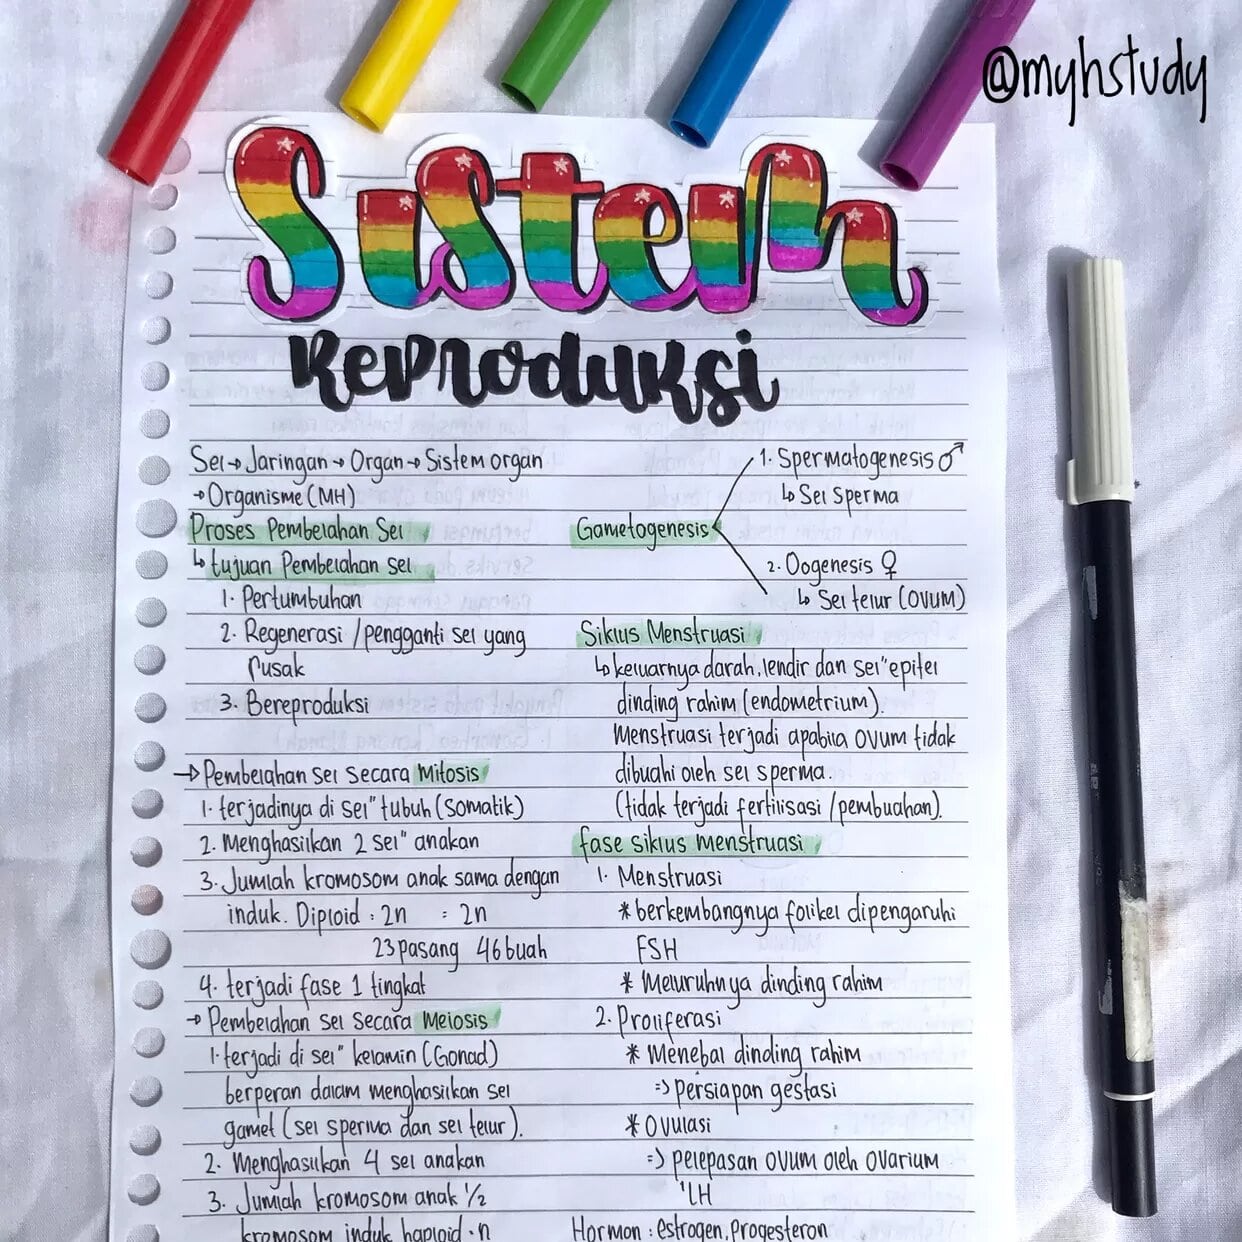 @myhstudy
Sistem
Reproduksi
Sel → Jaringan → Organ → Sistem organ
→ Organisme (MH)
Proses Pembelahan Sel
↳ tujuan Pembelahan sel
1. Pertumbuhan
2. Regenerasi / pengganti sel yang
rusak
3. Bereproduksi
→ Pembelahan sel secara Mitosis
1. terjadinya di sel" tubuh (somatik)
2. Menghasilkan 2 sel" anakan
3. Jumlah kromosom anak sama dengan
induk. Diploid : 2n = 2n
23 pasang 46 buah
4. terjadi fase 1 tingkat
→ Pembelahan sel secara Meiosis
1. terjadi di sel" kelamin (Gonad)
berperan dalam menghasilkan sel
gamet (sel sperma dan sel telur).
2. Menghasilkan 4 sel anakan
3. Jumlah kromosom anak 1/2
kromosom induk haploid · n
Gametogenesis
1. Spermatogenesis ♂
↳ Sel sperma
2. Oogenesis ♀
↳ Sel telur (OVUM)
Siklus Menstruasi
↳ keluarnya darah, lendir dan sel" epitel
dinding rahim (endometrium).
Menstruasi terjadi apabila OVUM tidak
dibuahi oleh sel sperma.
(tidak terjadi fertilisasi / pembuahan).
fase siklus menstruasi
1. Menstruasi
* berkembangnya folikel dipengaruhi
FSH
* Meluruhnya dinding rahim
2. Proliferasi
* Menebal dinding rahim
=> persiapan gestasi
* OVulasi
=> pelepasan OVUM oleh OVarium
'LH
Hormon : estrogen, Progesteron